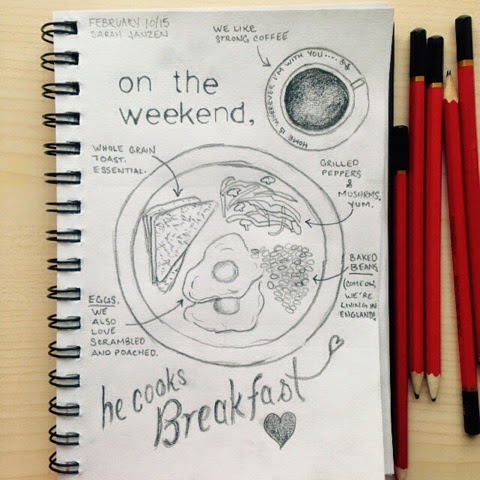 FEBRUARY 10/15
SARAH JANZEN
WE LIKE
STRONG COFFEE
HOME IS WHEREVER I'M WITH YOU....
on the
weekend,
WHOLE GRAIN
TOAST.
ESSENTIAL.
GRILLED
PEPPERS
&
MUSHRMS.
YUM.
BAKED
BEANS
(COME ON,
WE'RE
LIVING IN
ENGLAND!)
EGGS.
WE
ALSO
LOVE
SCRAMBLED
AND POACHED.
he cooks
Breakfast